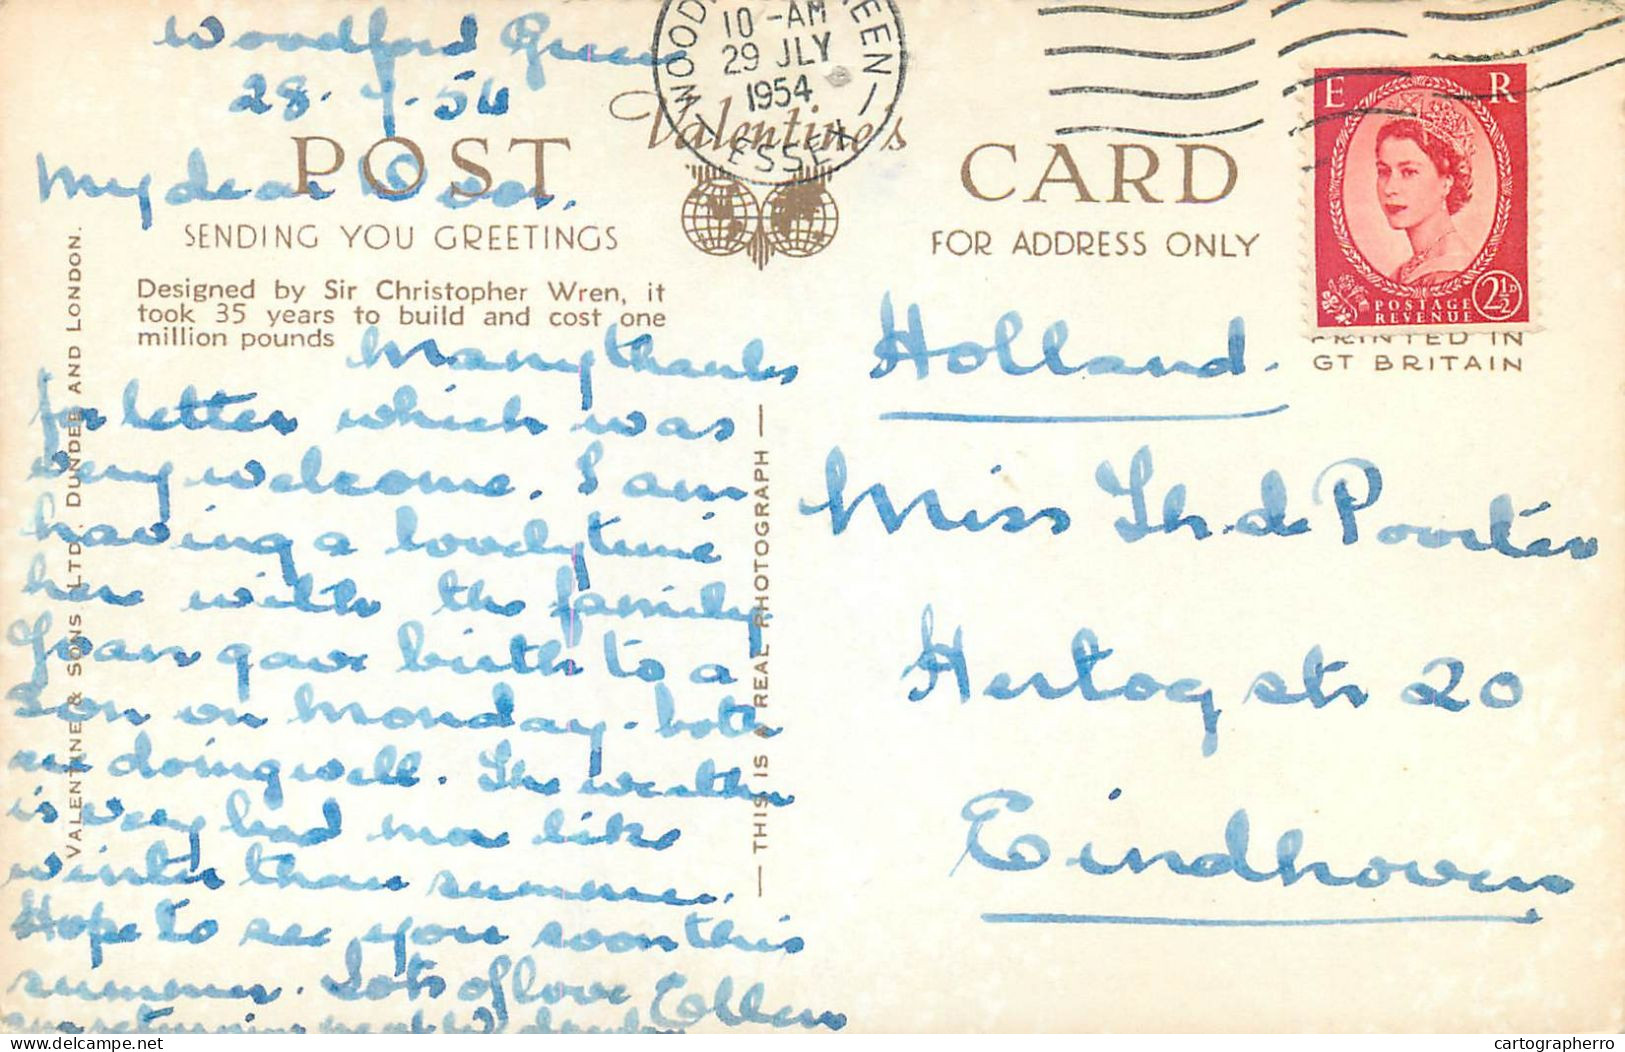 Woodford Green
28.7.54
My dear Door.
Many thanks
for letter which was
very welcome. I am
having a lovely time
here with the family
Joan gave birth to a
son on Monday - both
are doing well. The weather
is very bad more like
winter than summer.
Hope to see you soon this
summer. Lots of love Ellen
am returning next Wednesday
POST Valentine's CARD
SENDING YOU GREETINGS
FOR ADDRESS ONLY
Designed by Sir Christopher Wren, it
took 35 years to build and cost one
million pounds
VALENTINE & SONS LTD. DUNDEE AND LONDON.
— THIS IS A REAL PHOTOGRAPH —
10 -AM
29 JLY
1954
ESSEX
E R
POSTAGE
REVENUE
2½D
PRINTED IN
GT BRITAIN
Holland.
Miss Th. d. Poorter
Hertog str 20
Eindhoven
delcampe.net
cartographerro